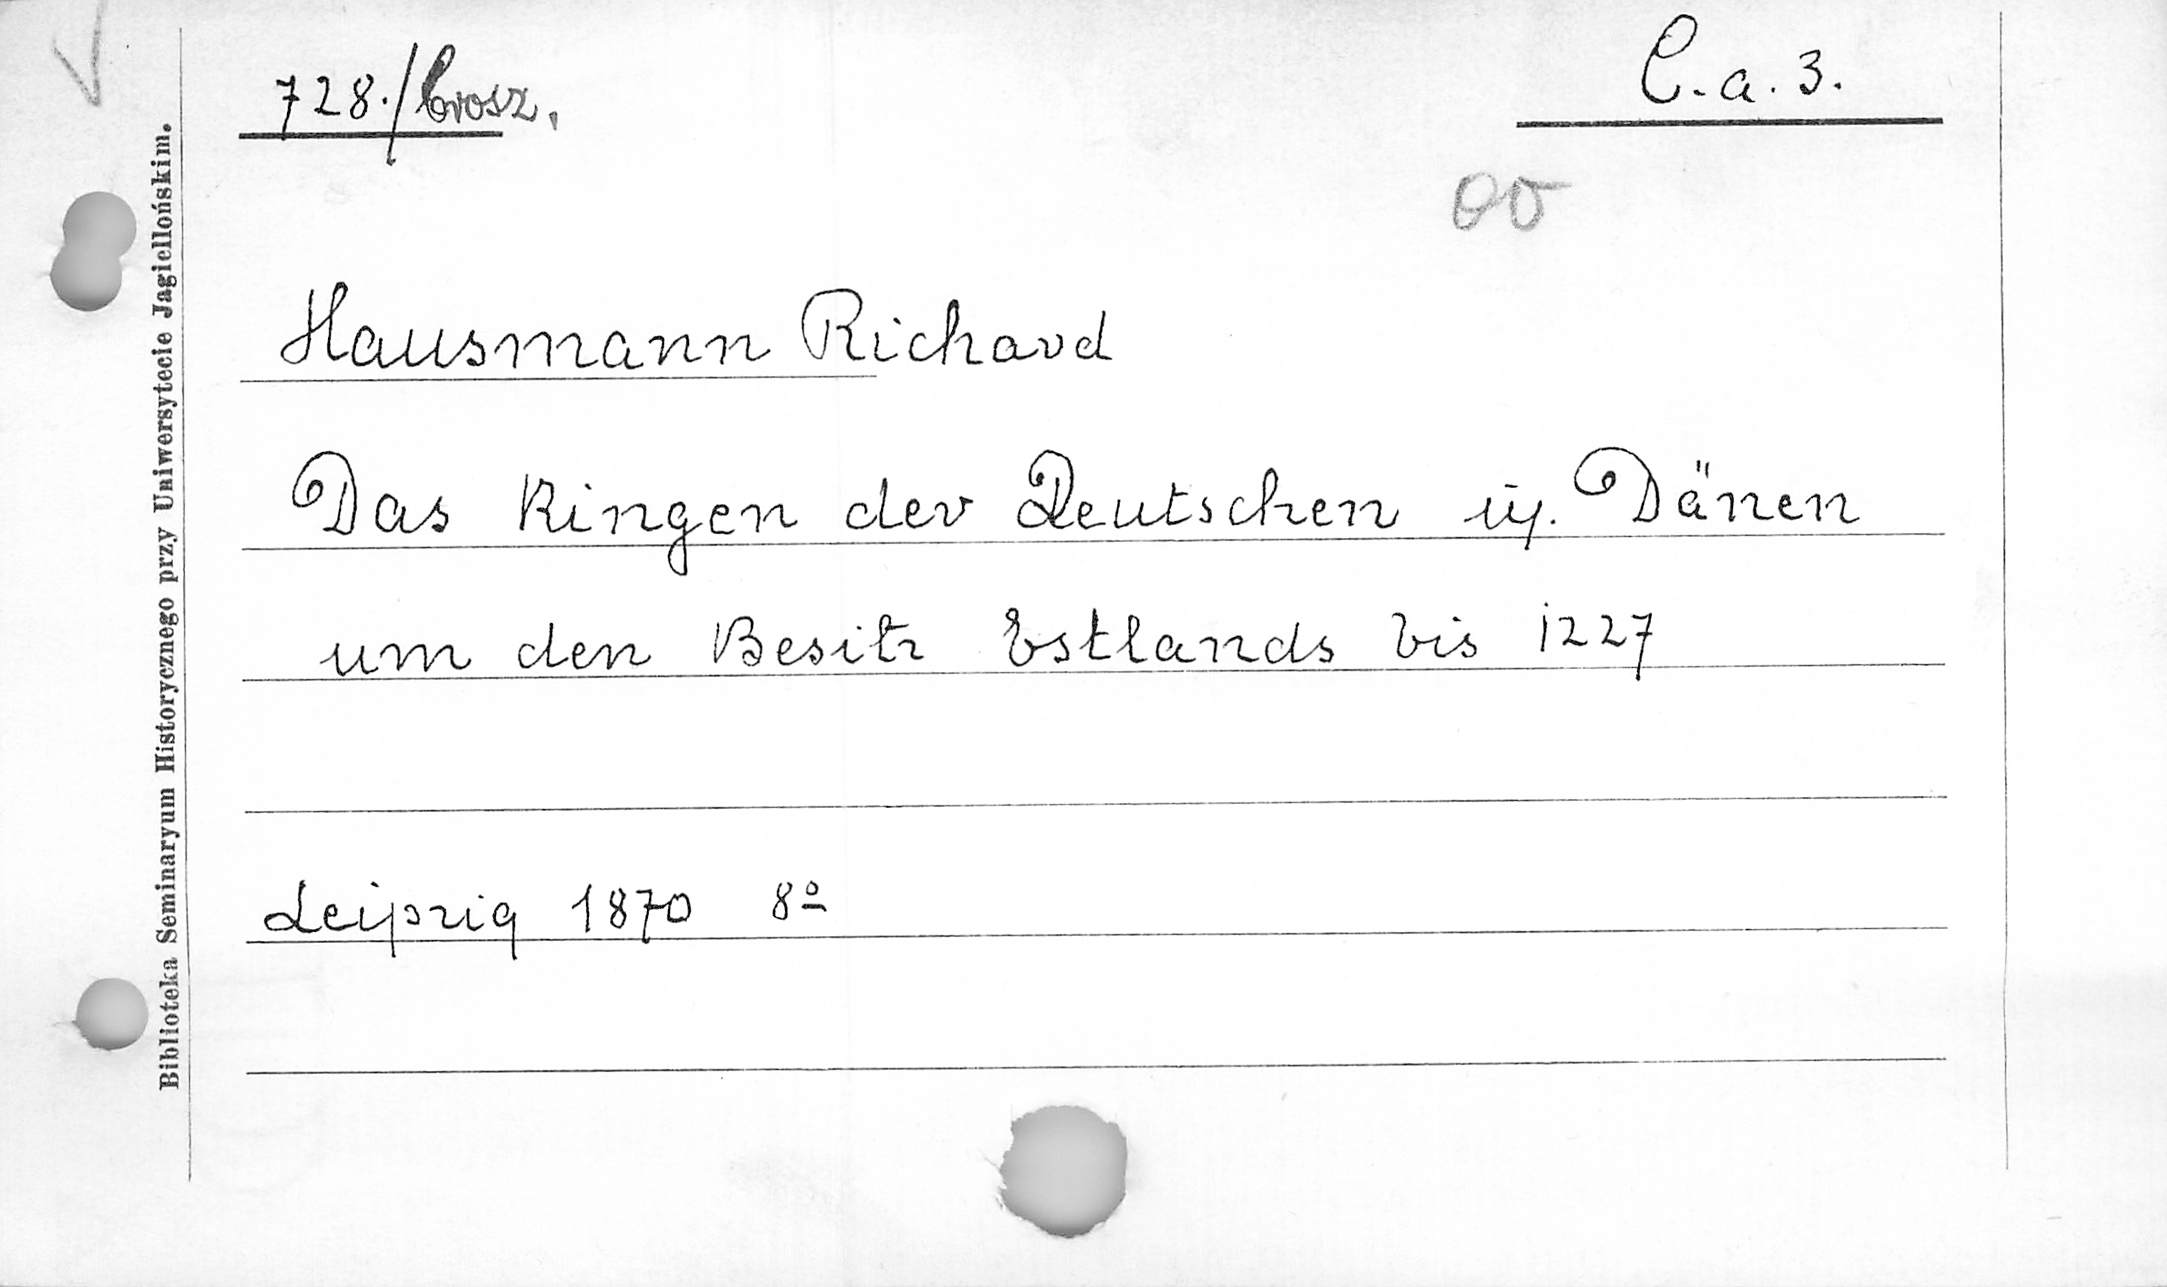 728./brosz.
C.a.3.
Hausmann Richard
Das Ringen der Deutschen u. Dänen
um den Besitz Estlands bis 1227
Leipzig 1870 8º
Biblioteka Seminaryum Historycznego przy Uniwersytecie Jagiellońskim.